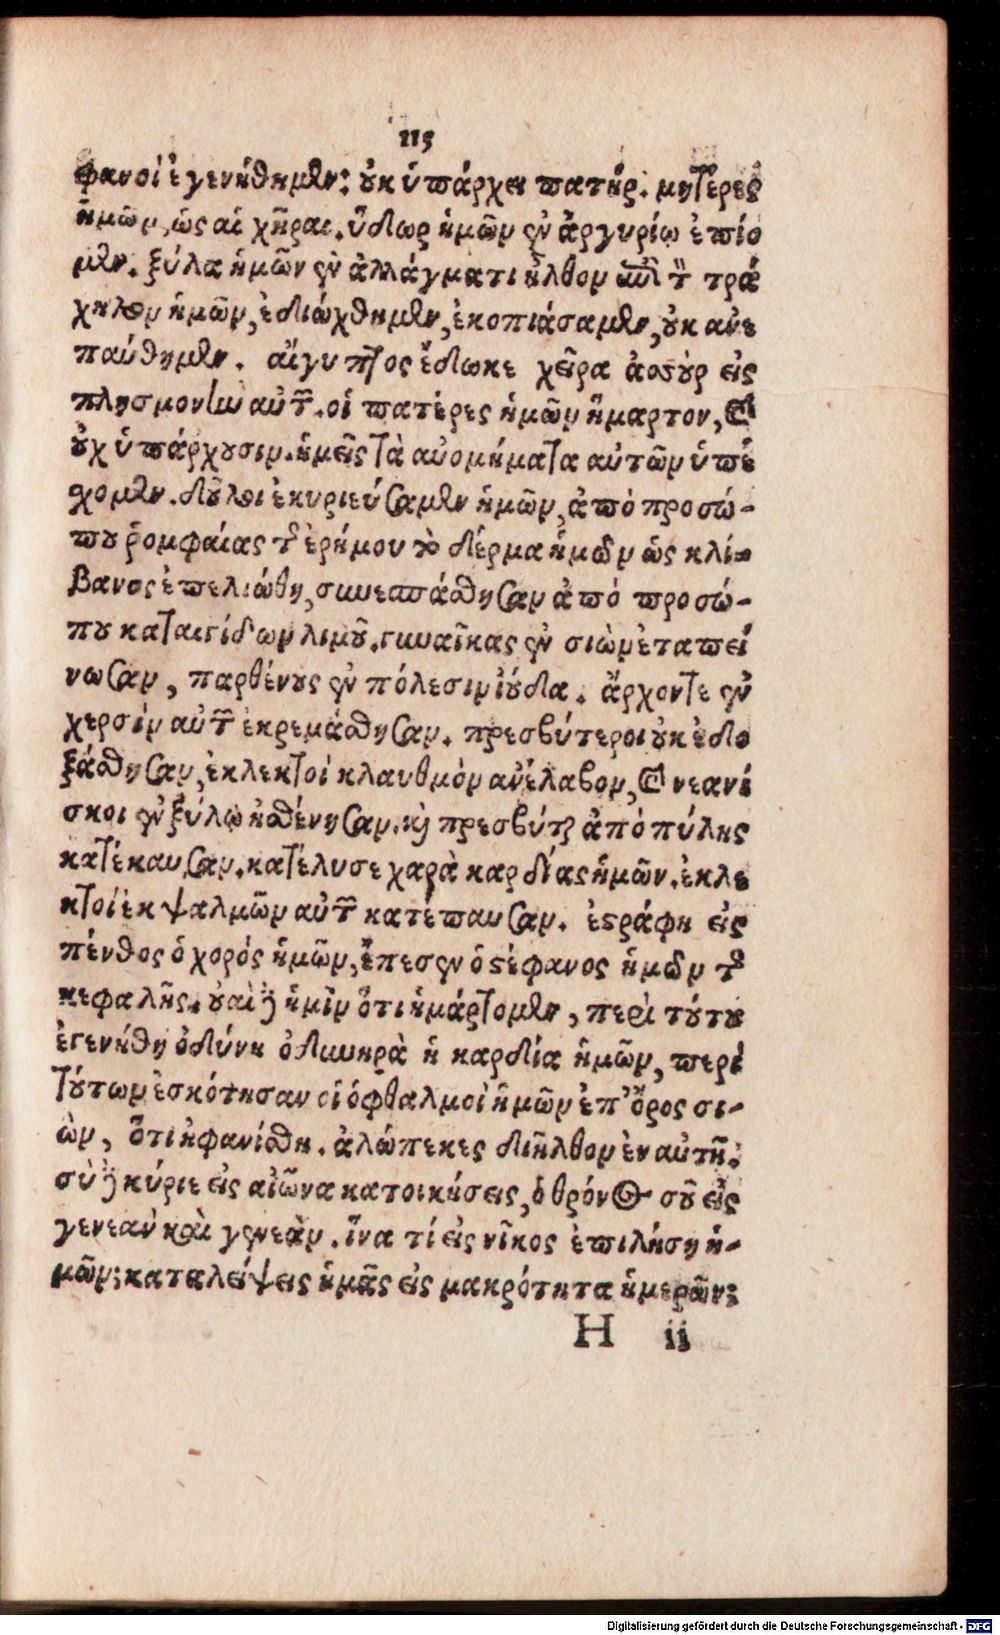 115
φανοὶ ἐγενήθημεν· οὐκ ὑπάρχει πατήρ. μητέρες
ἡμῶν, ὡς αἱ χῆραι. ὕδωρ ἡμῶν ἐν ἀργυρίῳ ἐπίο
μεν. ξύλα ἡμῶν ἐν ἀλλάγματι ἦλθον ἐπὶ τὸν τρά
χηλον ἡμῶν, ἐδιώχθημεν, ἐκοπιάσαμεν, οὐκ ἀνε
παύθημεν. αἴγυπτος ἔδωκε χεῖρα ἀσσοὺρ εἰς
πλησμονὴν αὐτῶν. οἱ πατέρες ἡμῶν ἥμαρτον, καὶ
οὐχ ὑπάρχουσιν. ἡμεῖς τὰ ἀνομήματα αὐτῶν ὑπέ
χομεν. δοῦλοι ἐκυριεύσαμεν ἡμῶν, ἀπὸ προσώ-
που ῥομφαίας τῆς ἐρήμου τὸ δέρμα ἡμῶν ὡς κλί-
βανος ἐπελιώθη, συνεσπάσθησαν ἀπὸ προσώ-
που καταιγίδων λιμοῦ. γυναῖκας ἐν σιὼν ἐταπεί
νωσαν, παρθένους ἐν πόλεσιν ἰούδα. ἄρχοντε ἐν
χερσὶν αὐτῶν ἐκρεμάσθησαν. πρεσβύτεροι οὐκ ἐδο
ξάσθησαν, ἐκλεκτοὶ κλαυθμὸν ἀνέλαβον, καὶ νεανί
σκοι ἐν ξύλῳ ἠσθένησαν. καὶ πρεσβύται ἀπὸ πύλης
κατέπαυσαν. κατέλυσε χαρὰ καρδίας ἡμῶν. ἐκλε
κτοὶ ἐκ ψαλμῶν αὐτῶν κατέπαυσαν. ἐστράφη εἰς
πένθος ὁ χορός ἡμῶν, ἔπεσεν ὁ στέφανος ἡμῶν τῆς
κεφαλῆς. οὐαὶ δὲ ἡμῖν ὅτι ἡμάρτομεν, περὶ τούτου
ἐγενήθη ὀδύνη ὀδυνηρὰ ἡ καρδία ἡμῶν, περὶ
τούτων ἐσκότησαν οἱ ὀφθαλμοὶ ἡμῶν ἐπ' ὄρος σι-
ὼν, ὅτι ἠφανίσθη. ἀλώπεκες διῆλθον ἐν αὐτῇ.
σὺ δὲ κύριε εἰς αἰῶνα κατοικήσεις, ὁ θρόνος σοῦ εἰς
γενεὰν καὶ γενεὰν. ἵνα τί εἰς νῖκος ἐπιλήσῃ ἡ-
μῶν; καταλείψεις ἡμᾶς εἰς μακρότητα ἡμερῶν;
H ij
Digitalisierung gefördert durch die Deutsche Forschungsgemeinschaft - DFG